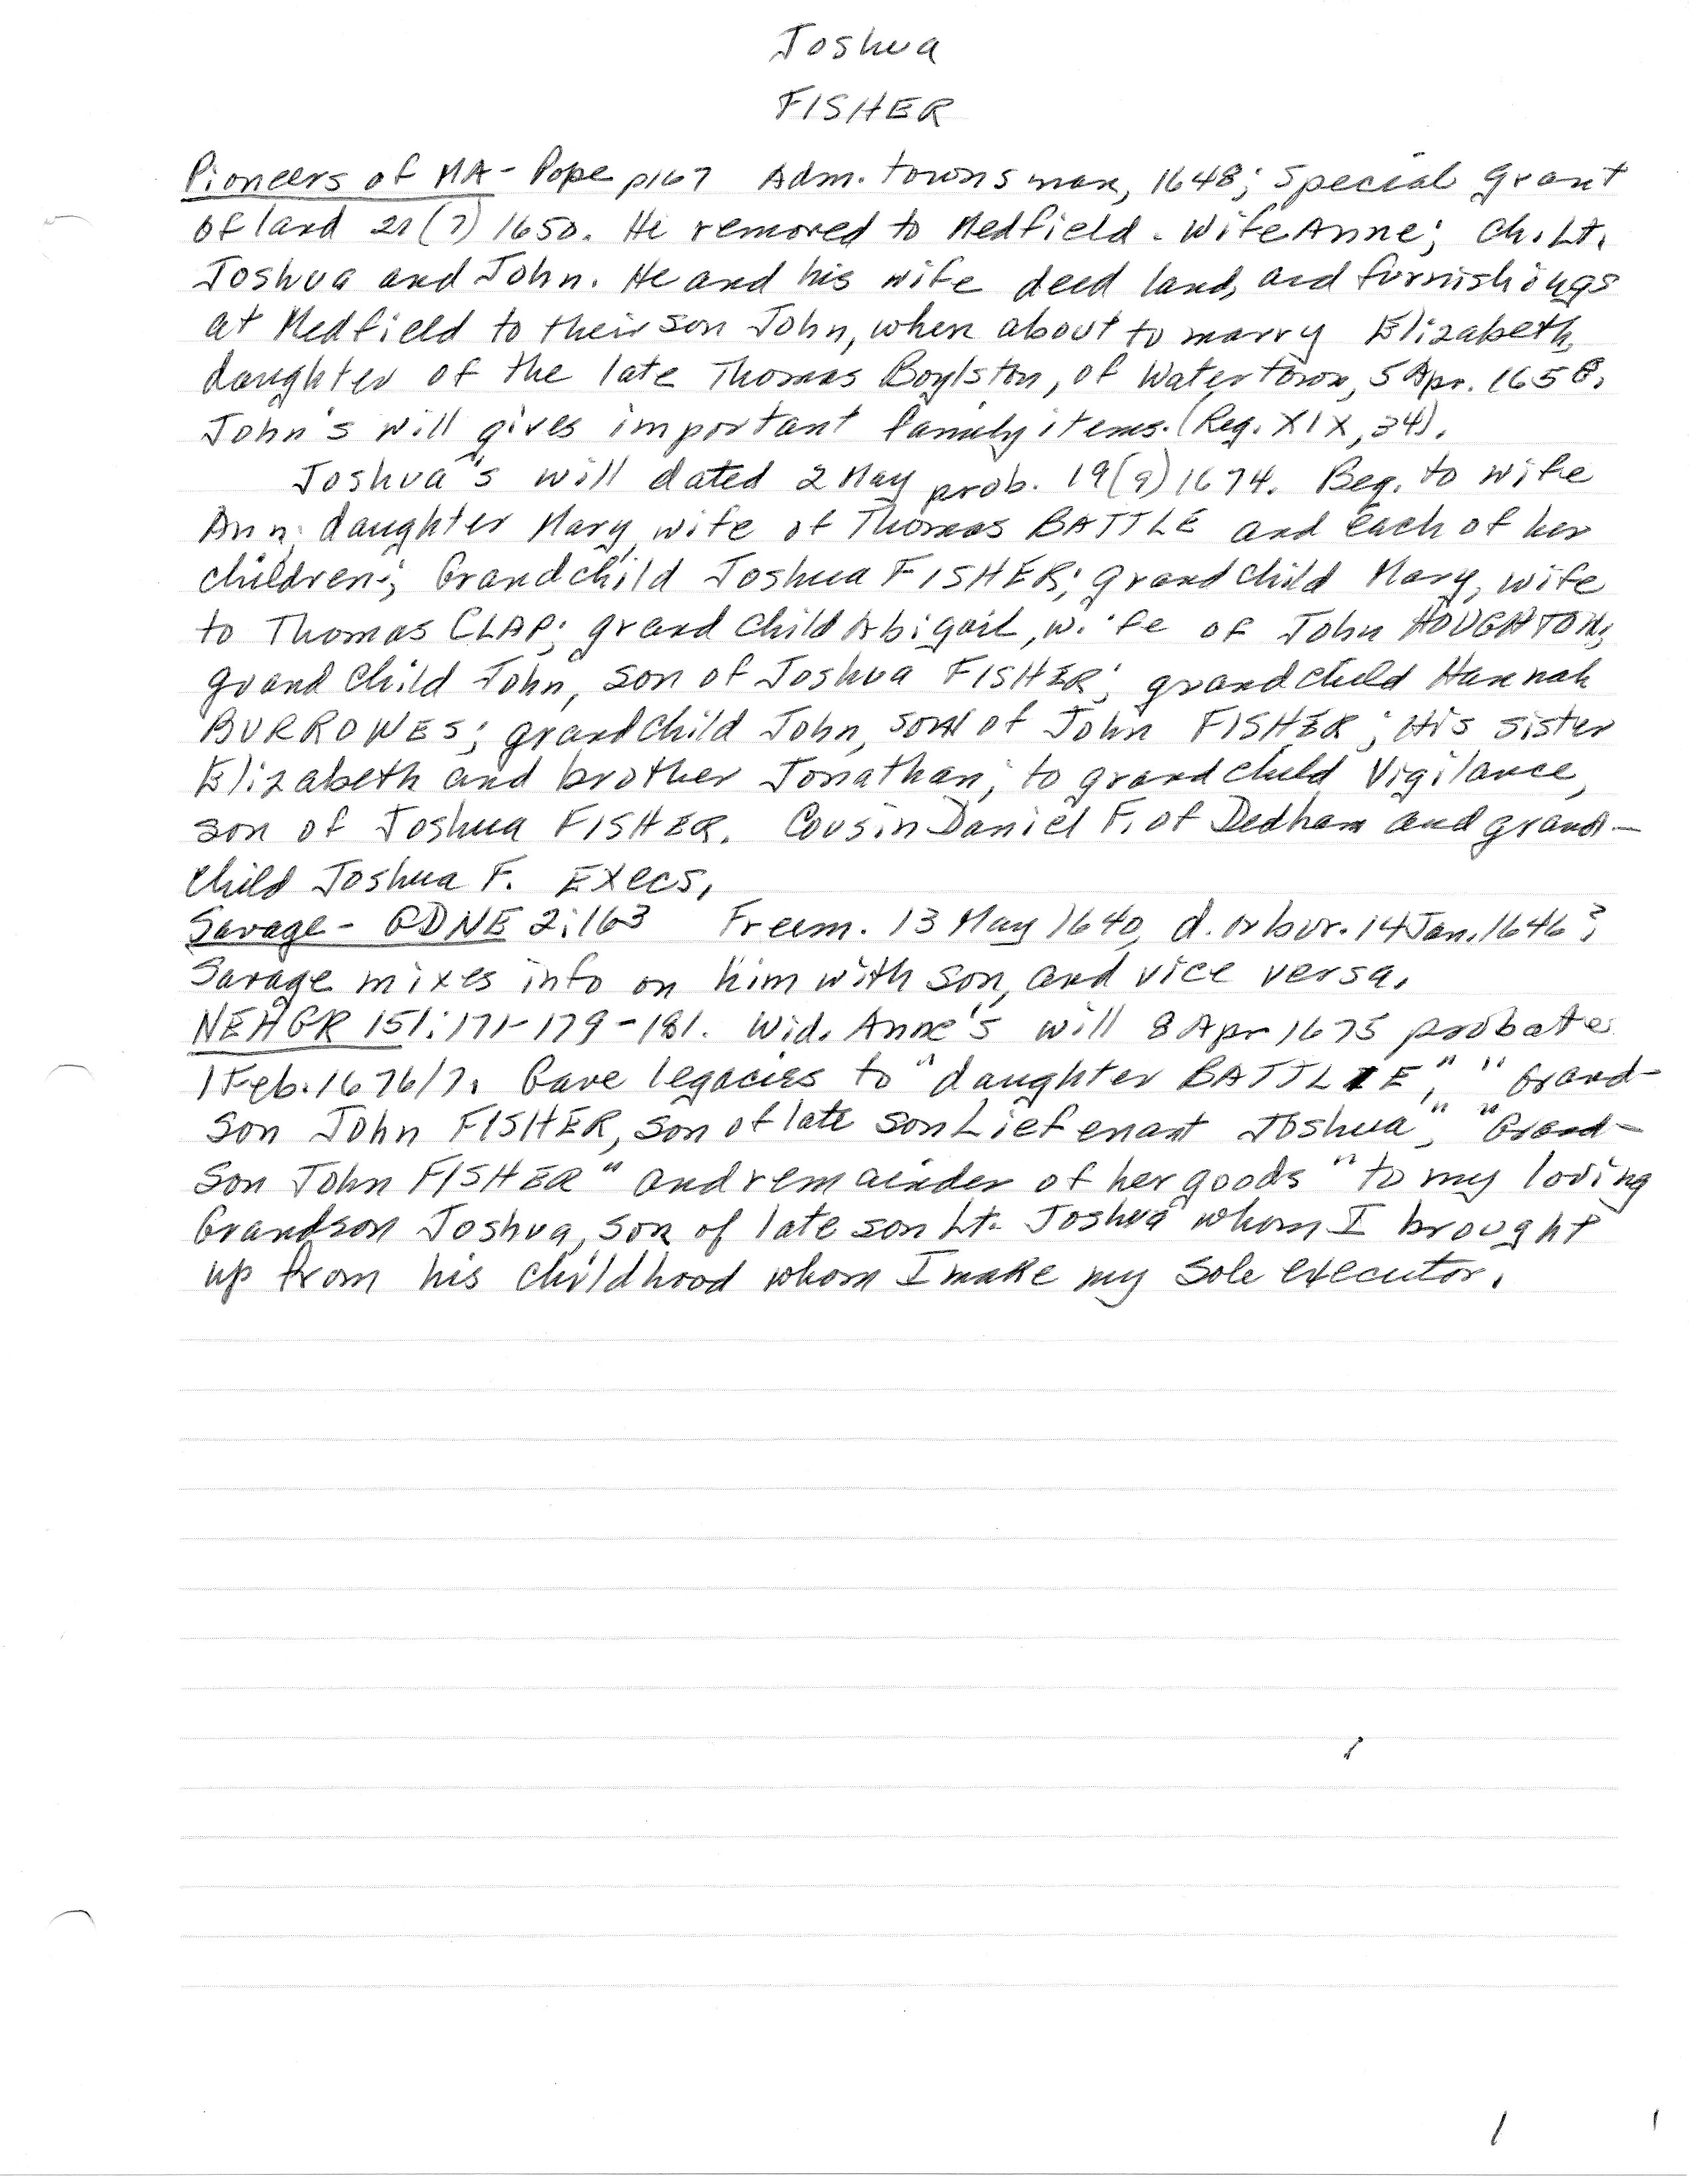 Joshua
FISHER
Pioneers of MA - Pope p167 Adm. townsman, 1648; special grant
of land 21 (7) 1650. He removed to Medfield. Wife Anne; ch. Lt.
Joshua and John. He and his wife deed land, and furnishings
at Medfield to their son John, when about to marry Elizabeth,
daughter of the late Thomas Boylston, of Watertown, 5 Apr. 1658.
John's will gives important family items. (Reg. XIX, 34).
Joshua's will dated 2 May prob. 19 (9) 1674. Beq. to wife
Ann; daughter Mary, wife of Thomas BATTLE and each of her
children; Grandchild Joshua FISHER; grandchild Mary, wife
to Thomas CLAP; grandchild Abigail, wife of John HOUGHTON;
grandchild John, son of Joshua FISHER; grandchild Hannah
BURROWES; grandchild John, son of John FISHER; His sister
Elizabeth and brother Jonathan; to grandchild Vigilance,
son of Joshua FISHER. Cousin Daniel F. of Dedham and grand-
child Joshua F. Execs.
Savage - GDNE 2:163 Freem. 13 May 1640, d. or bur. 14 Jan. 1646?
Savage mixes info on him with son, and vice versa.
NEHGR 151:171-179-181. Wid. Anne's will 8 Apr 1675 probate
1 Feb. 1676/7. Gave legacies to "daughter BATTLE", "Grand-
son John FISHER, son of late son Liefenant Joshua", "Grand-
Son John FISHER" and remainder of her goods "to my loving
Grandson Joshua, son of late son Lt. Joshua whom I brought
up from his childhood whom I make my sole executor.
1